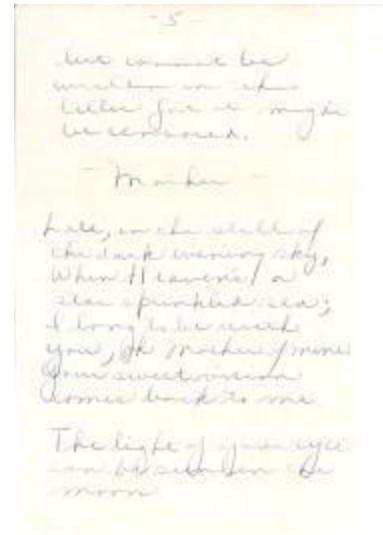 - 5 -
but cannot be
written in this
letter for it might
be censored.
- Mother -
Late, in the still of
the dark evening sky,
When Heaven's a
star sprinkled sea;
I long to be with
you, oh Mother of mine
Your sweet vision
comes back to me.
The light of your eyes
can be seen in the
moon